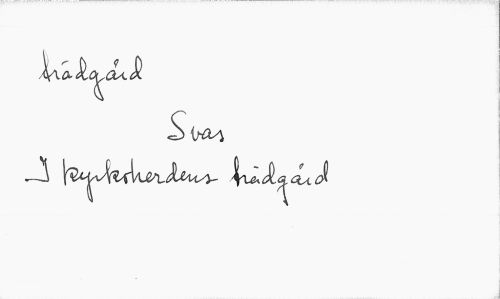 trädgård
Svas
I kyrkoherdens trädgård